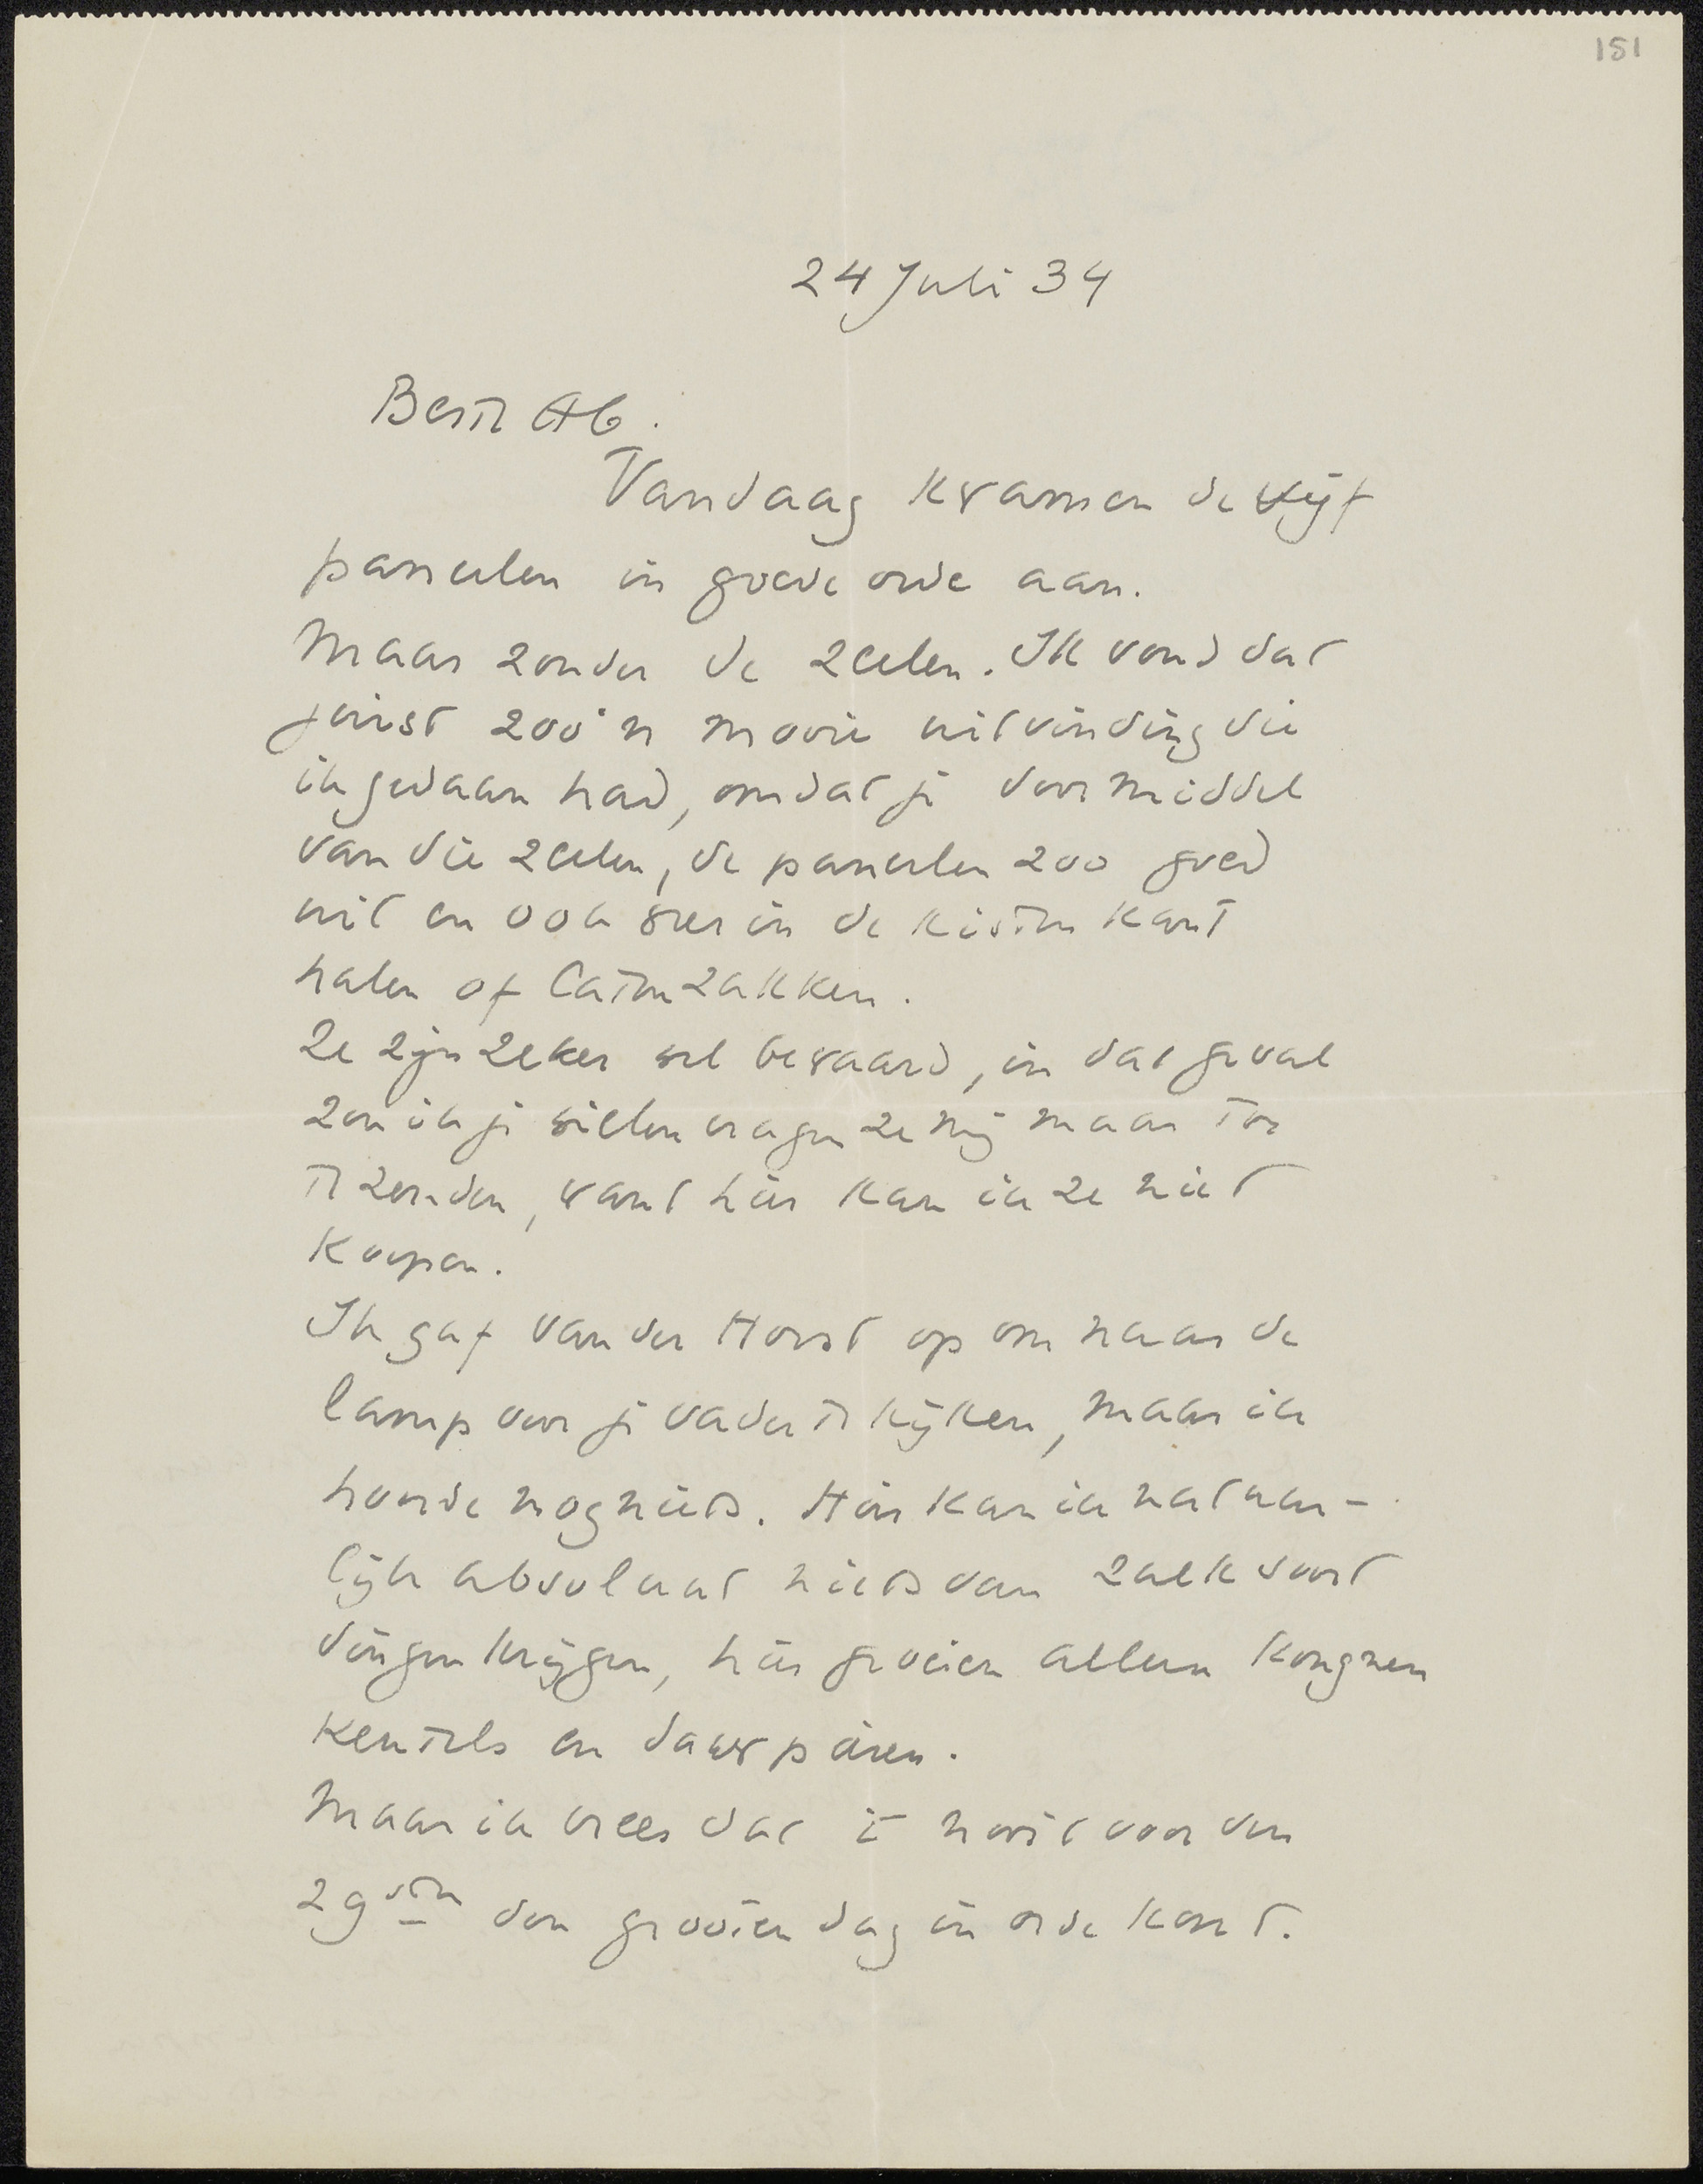 151
24 Juli 34
Beste Ab.
Vandaag kwamen de vijf
paneelen in goede orde aan.
Maar zonder de zeelen. Ik vond dat
juist zoo'n mooie uitvinding die
ik gedaan had, omdat je door middel
van die zeelen, de paneelen zoo goed
uit en ook weer in de kisten kunt
halen of laten zakken.
Ze zijn zeker wel bewaard, in dat geval
zou ik je willen vragen ze mij maar toe
te zenden, want hier kan ik ze niet
koopen.
Ik gaf van der Horst op om naar de
lamp voor je vader te kijken, maar ik
hoorde nog niets. Hier kan ik natuur-
lijk absoluut niets van zulk soort
dingen krijgen, hier groeien alleen
keutels en
Maar ik vrees dat it nooit voor den
29sten den grooten dag in orde komt.